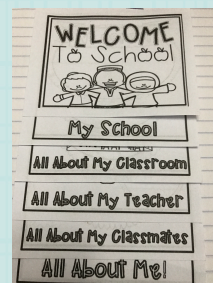 WELCOME
To School
My School
All About My Classroom
All About My Teacher
All About My Classmates
All About Me!